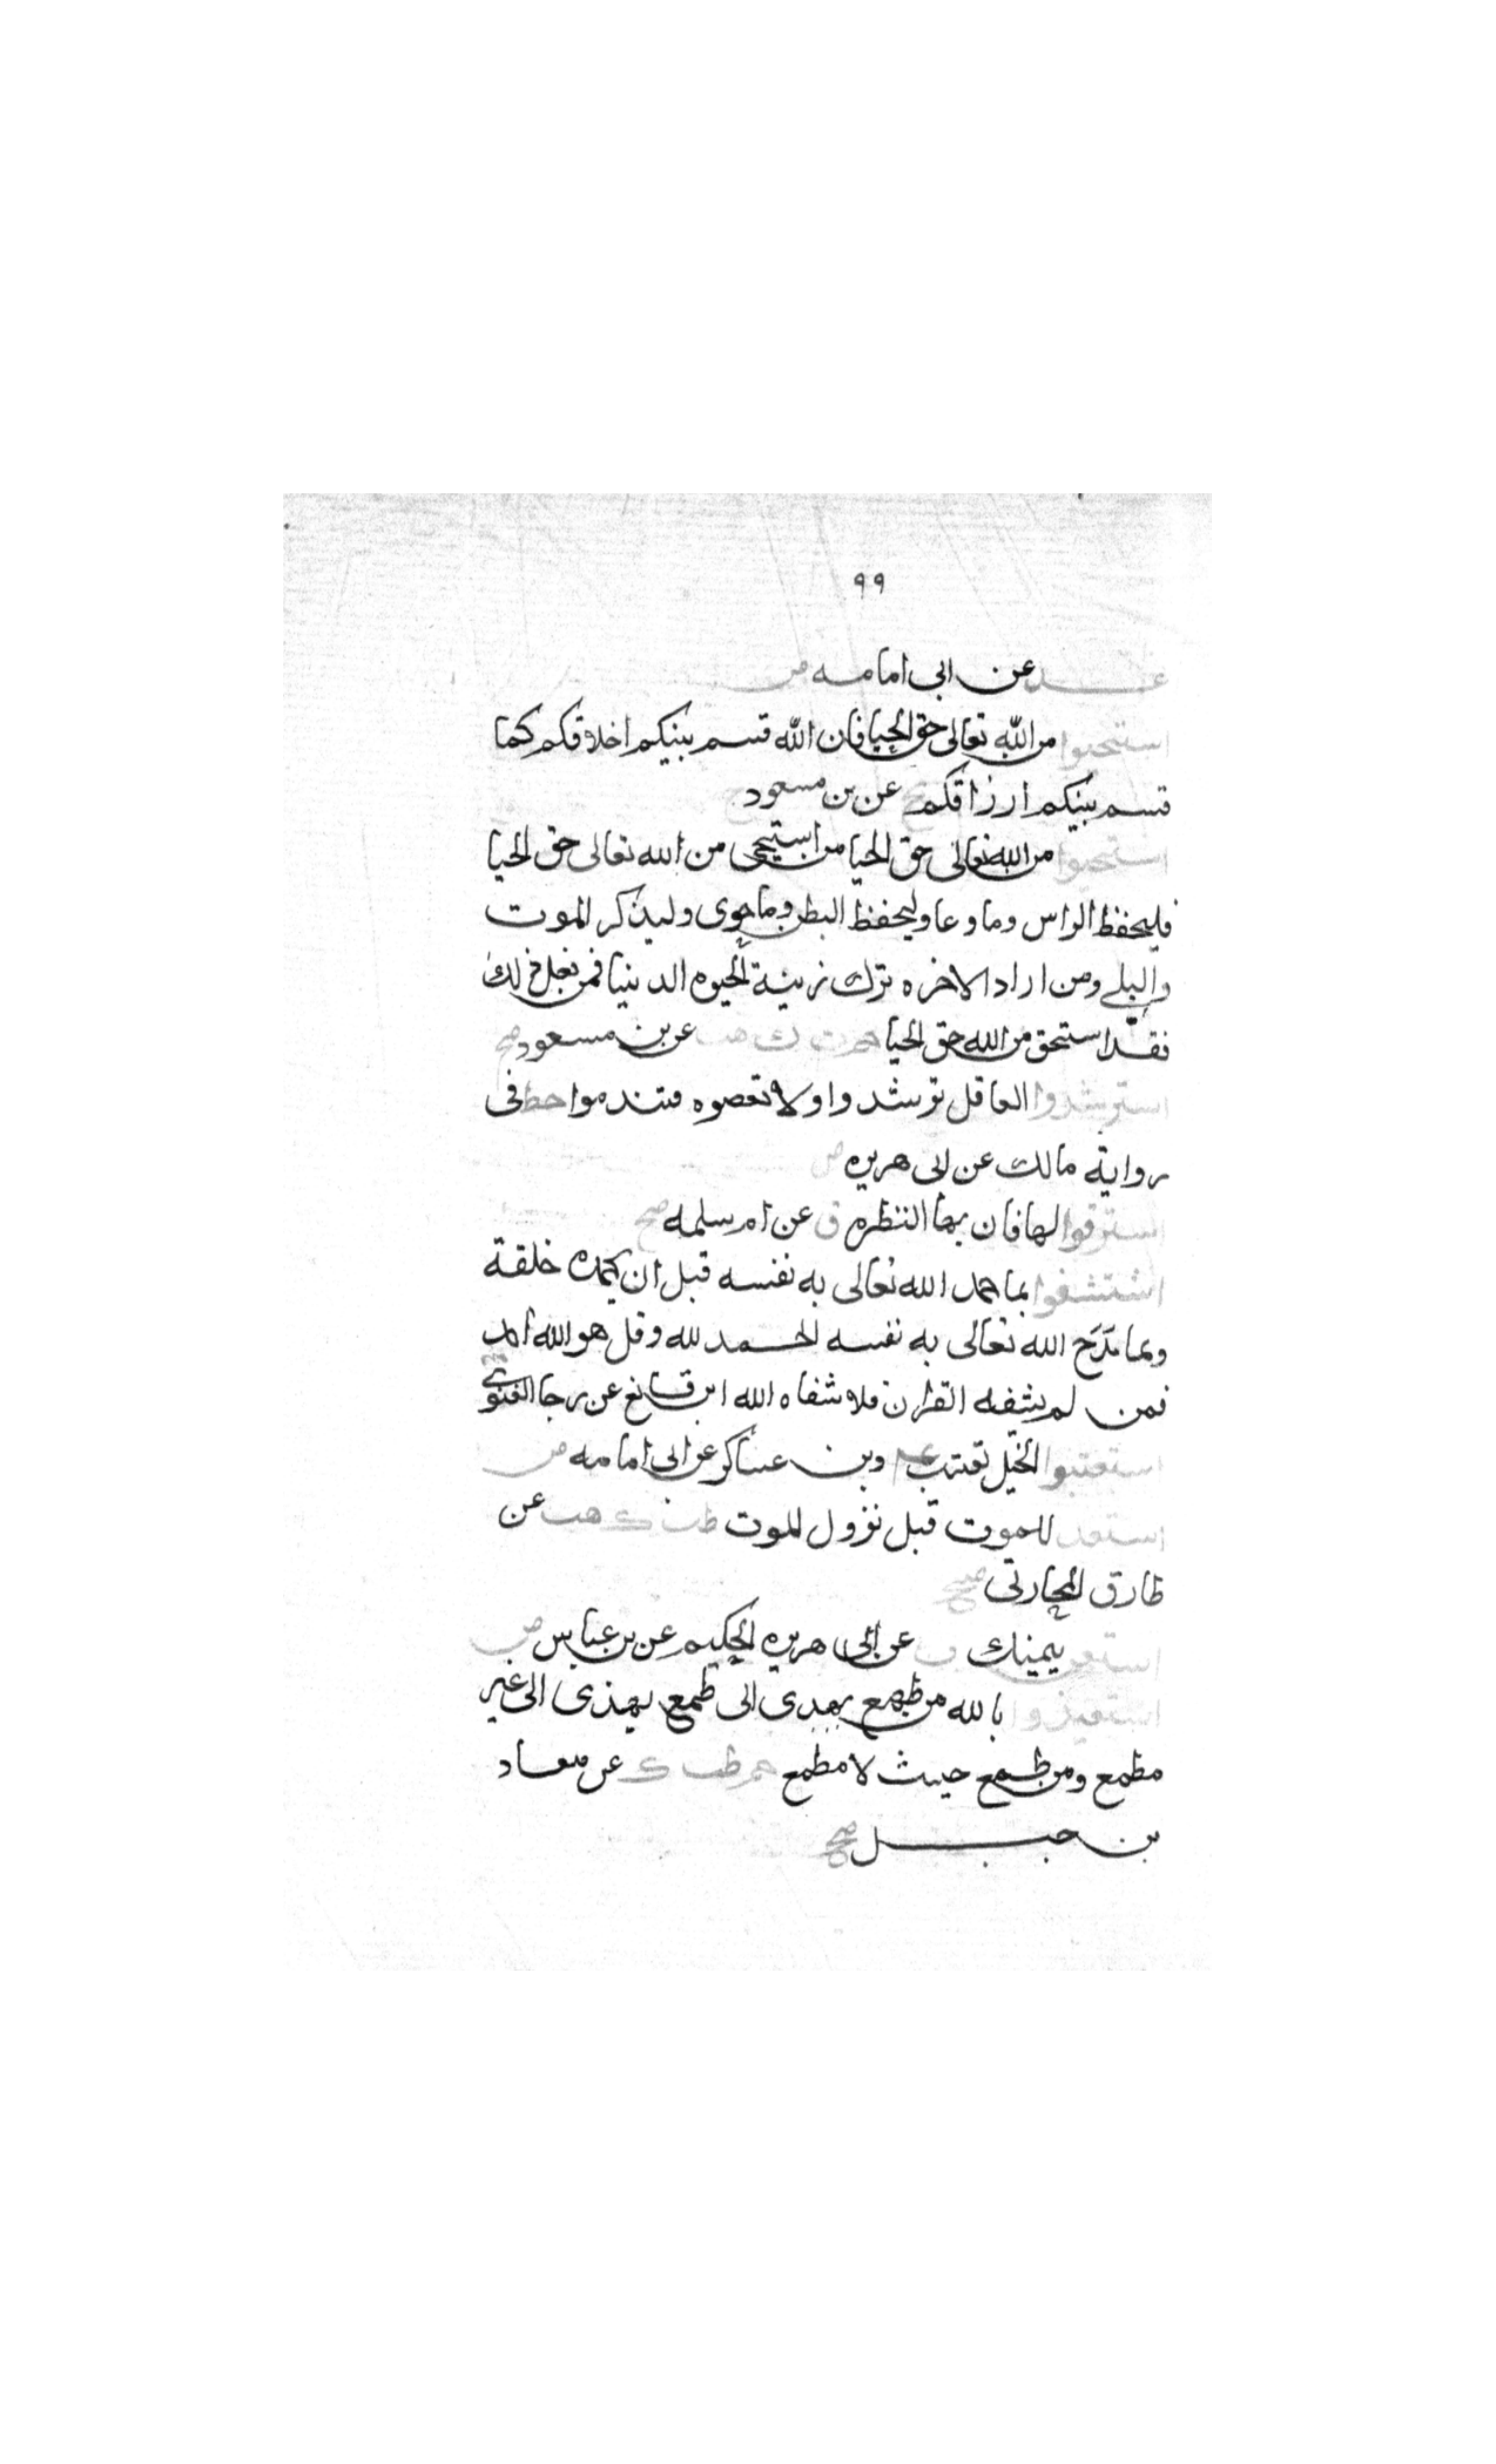 ٩٩
عد عن ابى امامه ض
استحيوا من الله تعالى حق الحيا فان الله قسم بينكم اخلاقكم كما
قسم بينكم ارزاقكم تخ عن بن مسعود ح
استحيوا من الله تعالى حق الحيا من استحيى من الله تعالى حق الحيا
فليحفظ الراس وما وعا وليحفظ البطن وما حوى وليذكر الموت
والبلى ومن اراد الاخره ترك زينة الحيوه الدنيا فمن فعل ذلك
فقد استحق من الله حق الحيا حم ت ك هب عن بن مسعود صح
استرشدوا العاقل ترشدوا ولا تعصوه فتندموا خط فى
رواية مالك عن ابى هريره ض
استرقوا لها فان بها النظره ق عن ام سلمه صح
اشتشفوا بما حمد الله تعالى به نفسه قبل ان يحمده خلقة
وبما مَدَح الله تعالى به نفسه الحمد لله وقل هو الله احد
فمن لم يشفه القران فلا شفاه الله ابن قانع عن رجا الغنوى
استعتبوا الخيل تعتب عد وبن عساكر عن ابى امامه ض
استعد للموت قبل نزول الموت طب ك هب عن
طارق المحاربى صح
استعن بيمينك ت عن ابى هريره الحكيم عن بن عباس ض
استعيذوا بالله من طمع يهدى الى طمع يهذى الى غير
مطمع ومن طمع حيث لا مطمع حم طب ك عن معاد
بن جبل صح